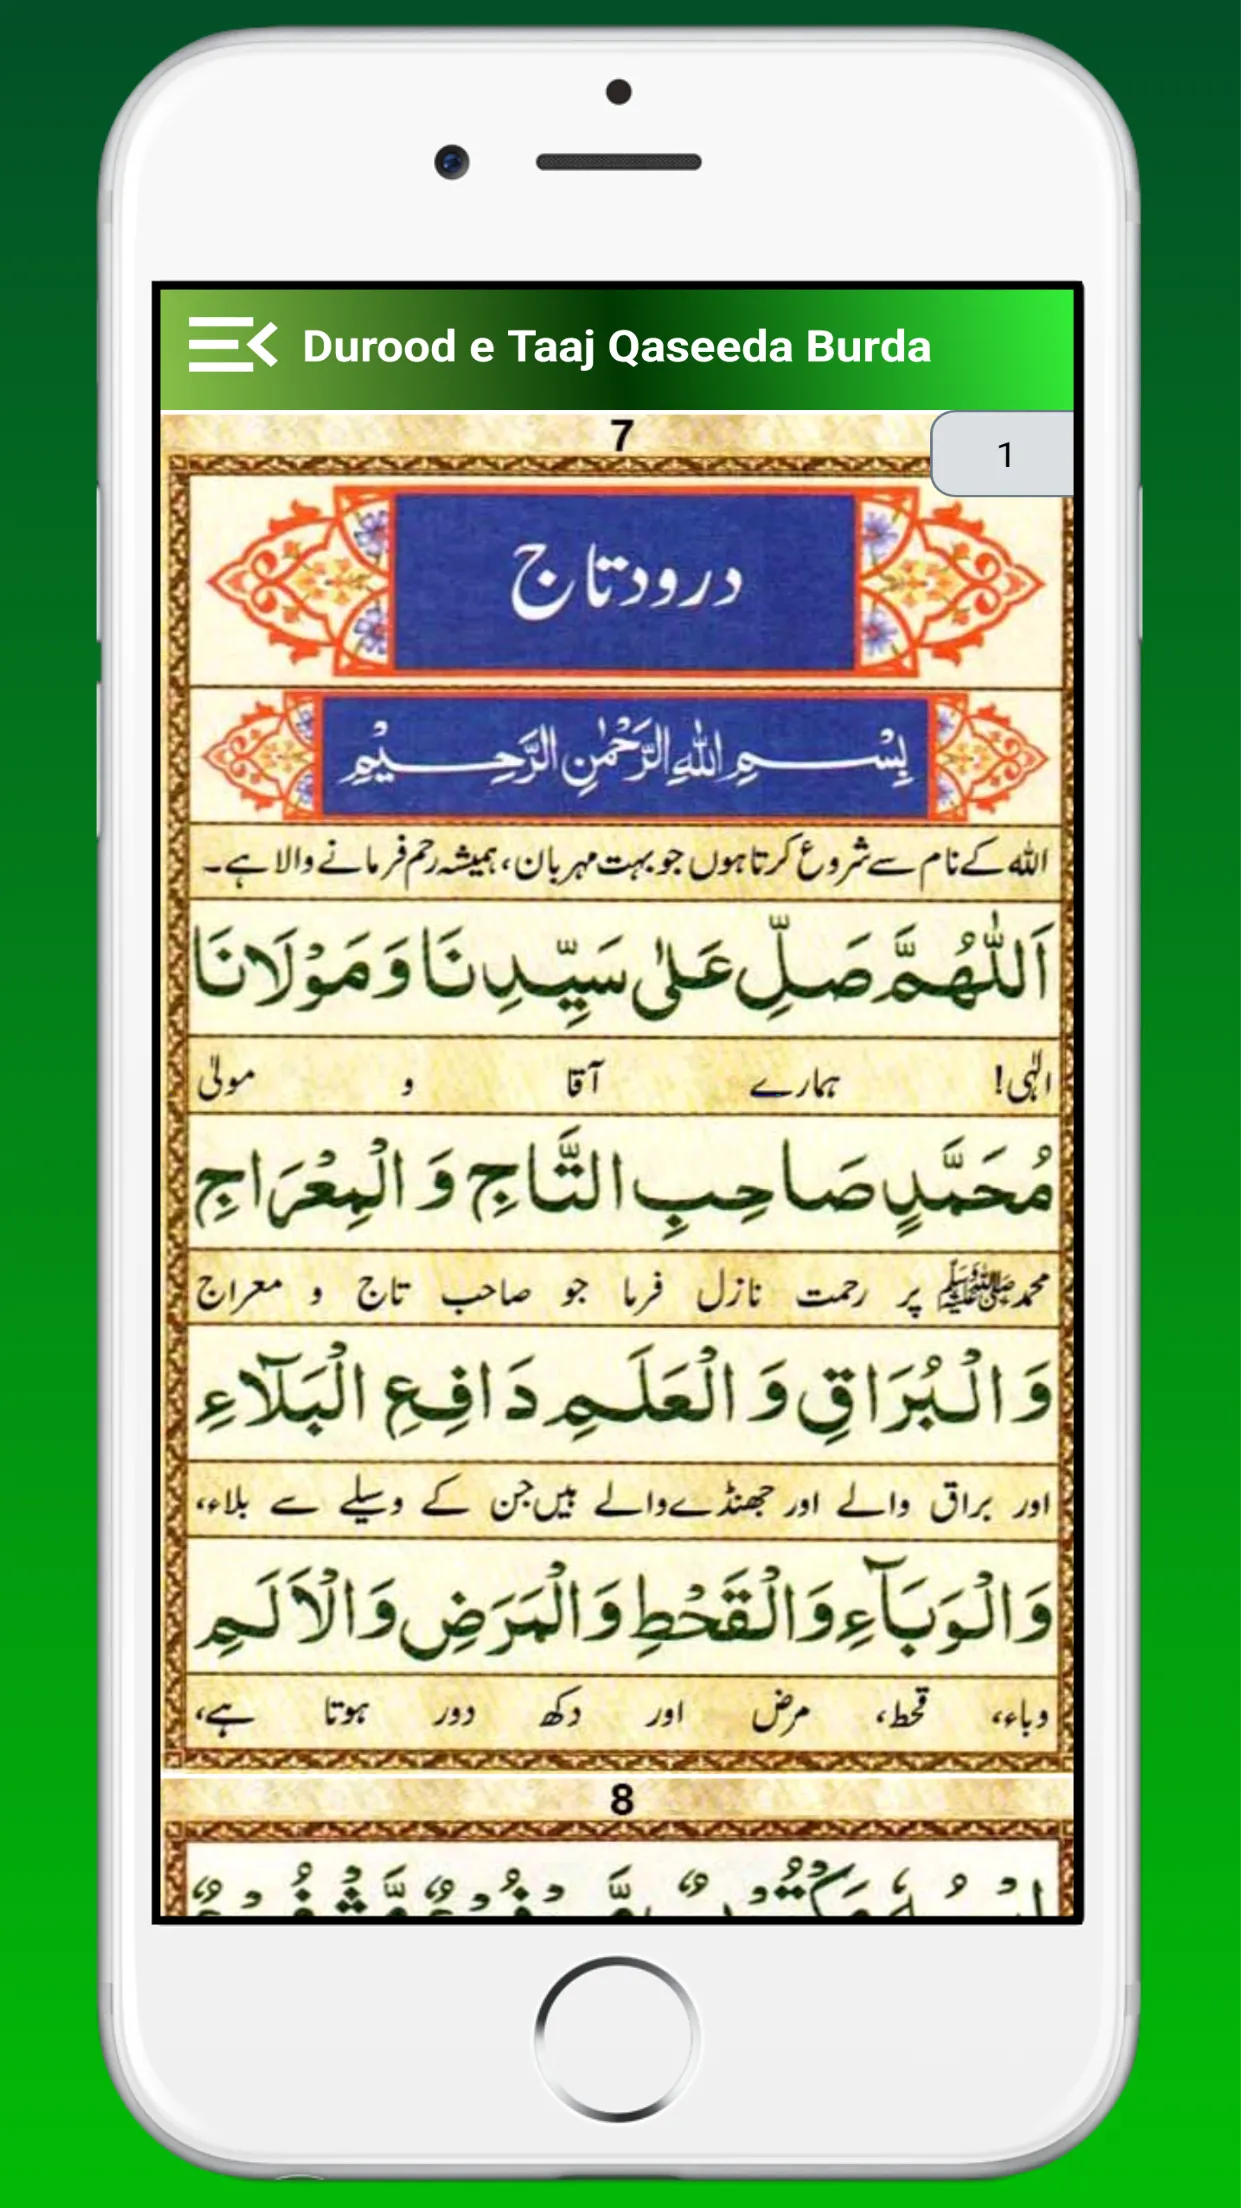 Durood e Taaj Qaseeda Burda
1
7
درود تاج
بِسْمِ اللهِ الرَّحْمٰنِ الرَّحِيْمِ
اللہ کے نام سے شروع کرتا ہوں جو بہت مہربان، ہمیشہ رحم فرمانے والا ہے۔
اَللّٰهُمَّ صَلِّ عَلٰى سَيِّدِنَا وَمَوْلَانَا
الٰہی! ہمارے آقا و مولیٰ
مُحَمَّدٍ صَاحِبِ التَّاجِ وَالْمِعْرَاجِ
محمد ﷺ پر رحمت نازل فرما جو صاحب تاج و معراج
وَالْبُرَاقِ وَالْعَلَمِ دَافِعِ الْبَلَآءِ
اور براق والے اور جھنڈے والے ہیں جن کے وسیلے سے بلاء،
وَالْوَبَآءِ وَالْقَحْطِ وَالْمَرَضِ وَالْاَلَمِ
وباء، قحط، مرض اور دکھ دور ہوتا ہے،
8